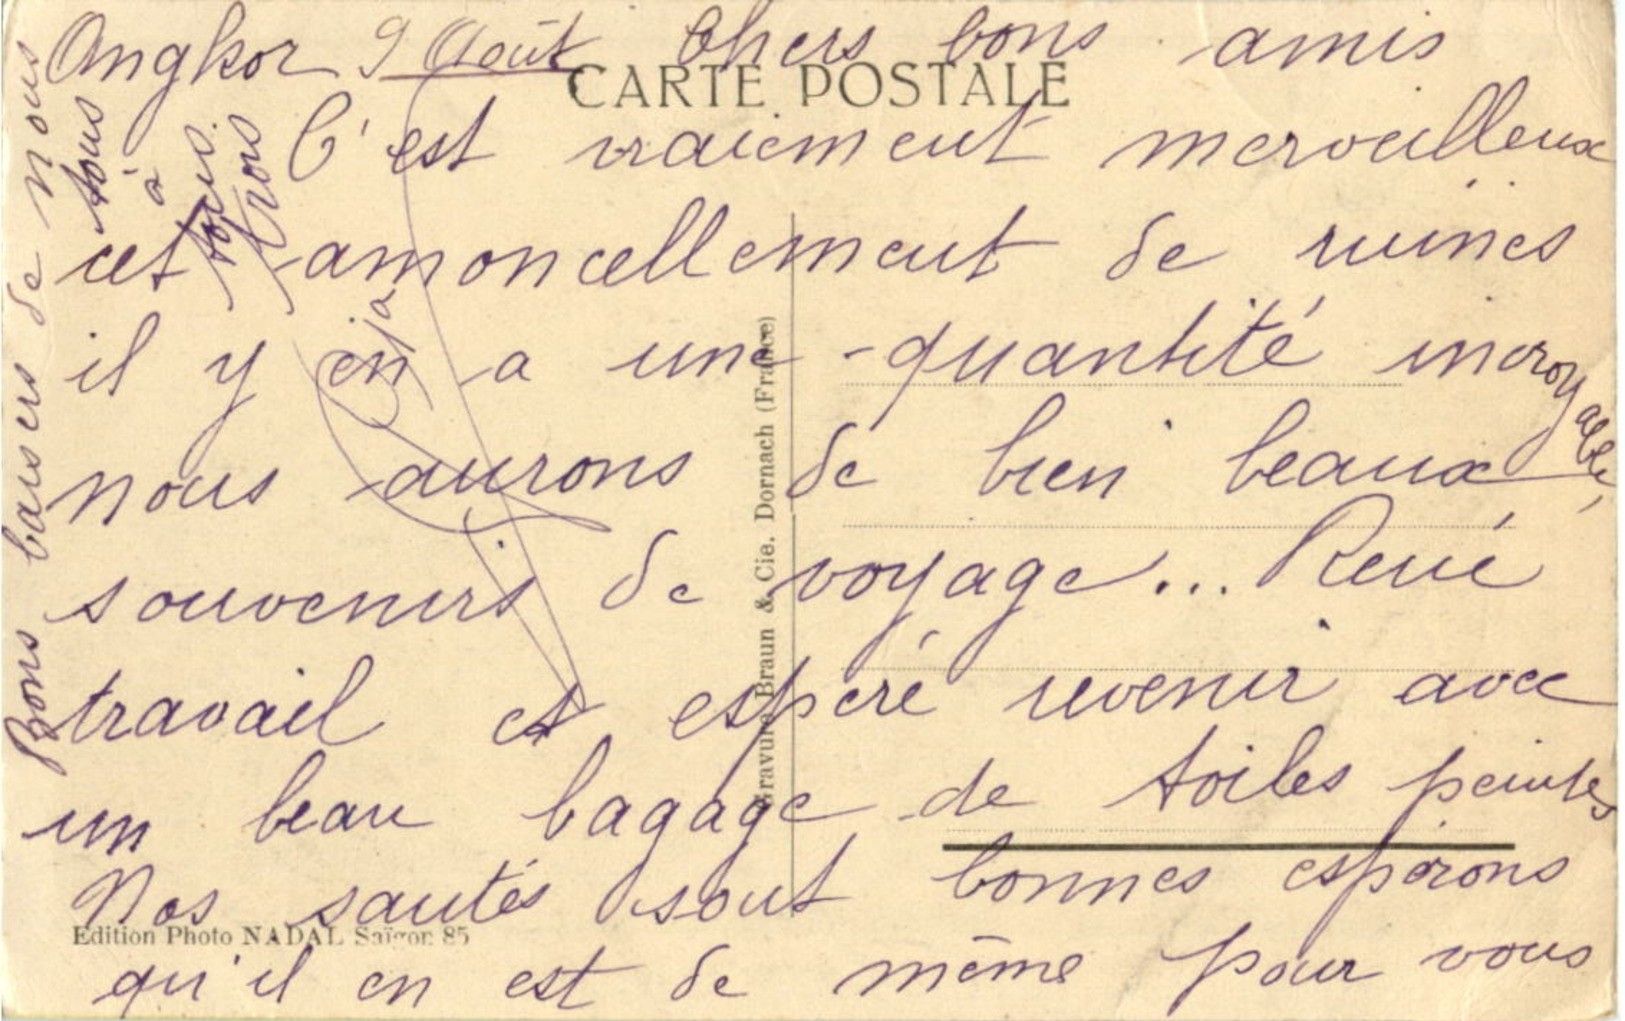 Angkor 9 Août Chers bons amis
CARTE POSTALE
C'est vraiement merveilleux
cet amoncellement de ruines
il y en a une quantité incroyable,
nous aurons de bien beaux
souvenirs de voyage... René
travail et espére revenir avec
un beau bagage de toiles peintes
Nos santés sont bonnes espérons
qu'il en est de même pour vous
Bons baisers de nous
tous
à
tous
trois
Gravure Braun & Cie. Dornach (France)
Edition Photo NADAL Saïgon 85